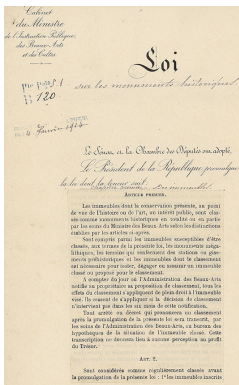 Cabinet
du Ministre
de l'Instruction Publique,
des Beaux-Arts
et des Cultes
Loi
sur les monuments historiques
B 120
4 Janvier 1914
Le Sénat et la Chambre des Députés ont adopté,
Le Président de la République promulgue
la loi dont la teneur suit
ARTICLE PREMIER.
Les immeubles dont la conservation présente, au point
de vue de l'histoire ou de l'art, un intérêt public, sont clas-
sés comme monuments historiques en totalité ou en partie
par les soins du Ministre des Beaux-Arts selon les distinctions
établies par les articles ci-après.
Sont compris parmi les immeubles susceptibles d'être
classés, aux termes de la présente loi, les monuments méga-
lithiques, les terrains qui renferment des stations ou gise-
ments préhistoriques et les immeubles dont le classement
est nécessaire pour isoler, dégager ou assainir un immeuble
classé ou proposé pour le classement.
A compter du jour où l'Administration des Beaux-Arts
notifie au propriétaire sa proposition de classement, tous les
effets du classement s'appliquent de plein droit à l'immeuble
visé. Ils cessent de s'appliquer si la décision de classement
n'intervient pas dans les six mois de cette notification.
Tout arrêté ou décret qui prononcera un classement
après la promulgation de la présente loi sera transcrit, par
les soins de l'Administration des Beaux-Arts, au bureau des
hypothèques de la situation de l'immeuble classé. Cette
transcription ne donnera lieu à aucune perception au profit
du Trésor.
ART. 2.
Sont considérés comme régulièrement classés avant
la promulgation de la présente loi : 1° les immeubles inscrits